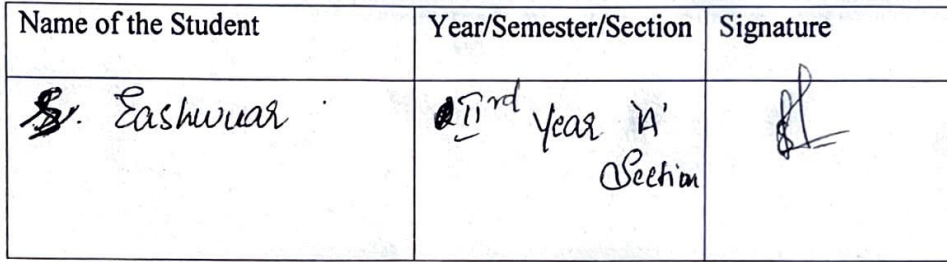 Name of the Student
Year/Semester/Section
Signature
S. Eashwuar
IIrd Year 'A'
Section